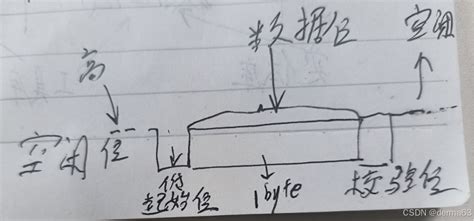 数据位
空闲
高
空闲位
低
起始位
1byte
校验位
CSDN @derma69